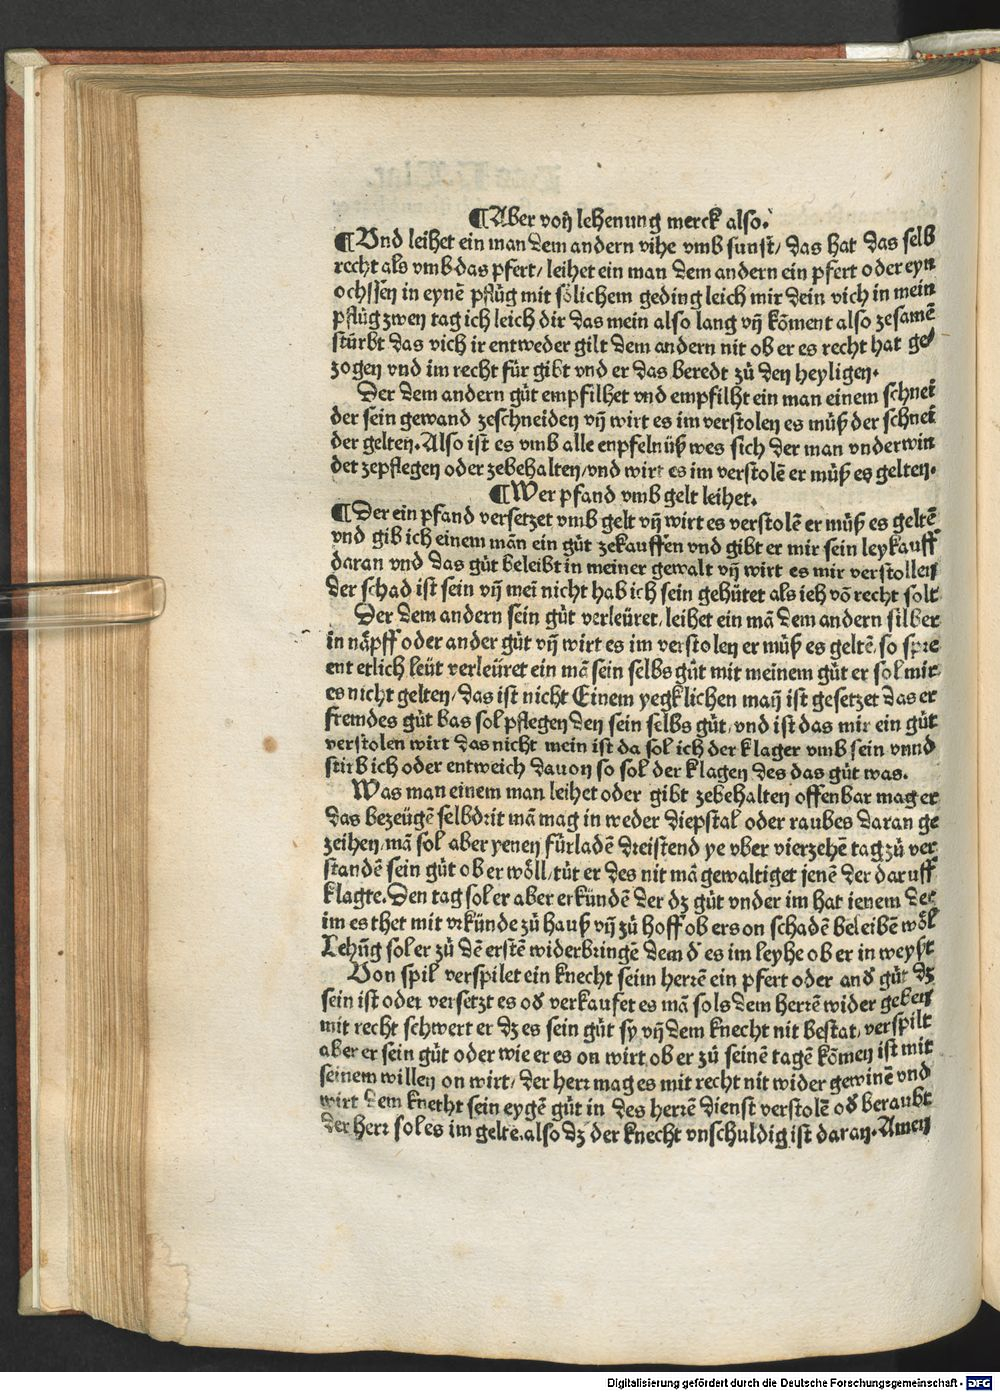 ¶Aber voñ lehenung merck also.
¶Vnd leihet ein man dem andern vihe vmb sunst/ das hat das selb
recht als vmb das pfert/ leihet ein man dem andern ein pfert oder eyn
ochssen in eynē pflůg mit sölichem geding leich mir dein vich in mein
pflůg zwen tag ich leich dir das mein also lang vñ kōment also zesamē
stürbt das vich ir entweder gilt dem andern nit ob er es recht hat ge/
zogen vnd im recht für gibt vnd er das beredt zů den heyligen.
Der dem andern gůt empfilhet vnd empfilht ein man einem schnei
der sein gewand zeschneiden vñ wirt es im verstolen es můß der schnei
der gelten. Also ist es vmb alle enpfelnüß wes sich der man vnderwin
det zepflegen oder zebehalten/ vnd wirt es im verstolē er můß es gelten.
¶Wer pfand vmb gelt leihet.
¶Der ein pfand versetzet vmb gelt vñ wirt es verstolē er můß es geltē
vnd gib ich einem mān ein gůt zekauffen vnd gibt er mir sein leykauff
daran vnd das gůt beleibt in meiner gewalt vñ wirt es mir verstollen
der schad ist sein vñ mei nicht hab ich sein gehütet als ich vō recht solt
Der dem andern sein gůt verleüret, leihet ein mā dem andern silber
in nāpff oder ander gůt vñ wirt es im verstolen er můß es geltē, so spre
ent etlich leüt verleüret ein mā sein selbs gůt mit meinem gůt er sol mir
es nicht gelten/ das ist nicht Einem yegklichen mañ ist gesetzet das er
fremdes gůt bas sol pflegen den sein selbs gůt, vnd ist das mir ein gůt
verstolen wirt das nicht mein ist da sol ich der klager vmb sein vnnd
stirb ich oder entweich dauon so sol der klagen des das gůt was.
Was man einem man leihet oder gibt zebehalten offenbar mag er
das bezeügē selbdrit mā mag in weder diepstal oder raubes daran ge
zeihen, mā sol aber yenen fürladē dreistend ye vber vierzehē tag zů ver
standē sein gůt ob er wöll/ tůt er des nit mā gewaltiget jenē der daruff
klagte. Den tag sol er aber erkündē der dz gůt vnder im hat ienem der
im es thet mit vrkünde zů hauß vñ zů hoff ob ers on schadē beleiben wöl
Lehūg sol er zů dē erstē widerbringē dem d̄ es im leyhe ob er in weyßt
Von spil verspilet ein knecht seim herrē ein pfert oder and̄ gůt dz
sein ist oder versetzt es od̄ verkaufet es mā sols dem herrē wider geben
mit recht schwert er dz es sein gůt sy vñ dem knecht nit bestat, verspilt
aber er sein gůt oder wie er es on wirt, ob er zů seinē tagē kōmen ist mit
seinem willen on wirt/ der herr mag es mit recht nit wider gewinē vnd
wirt dem knecht sein eygē gůt in des herrē dienst verstolē od̄ beraubt
der herr sol es im gelte. also dz der knecht vnschuldig ist daran. Amen
Digitalisierung gefördert durch die Deutsche Forschungsgemeinschaft - DFG